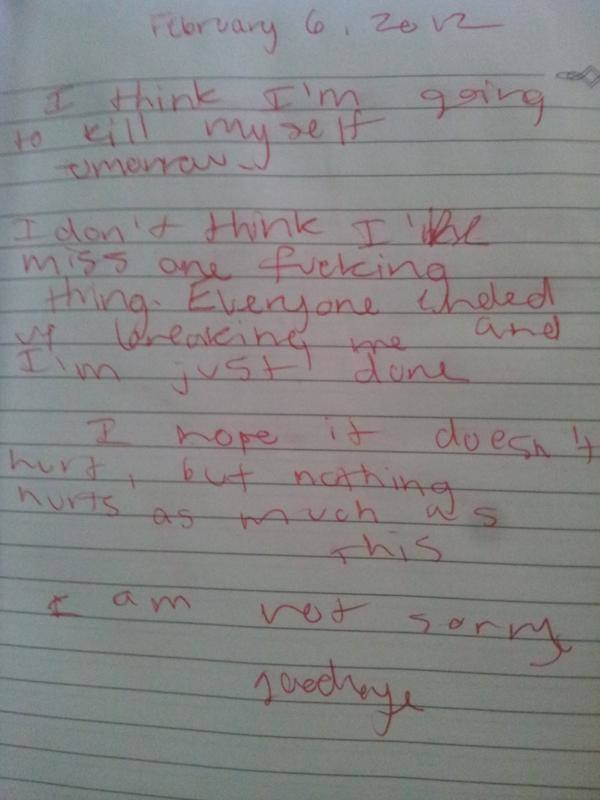 February 6, 2012
I think I'm going
to kill myself
tomorrow.
I don't think I'll
miss one fucking
thing. Everyone ended
up breaking me and
I'm just done
I hope it doesn't
hurt, but nothing
hurts as much as
this
I am not sorry
goodbye